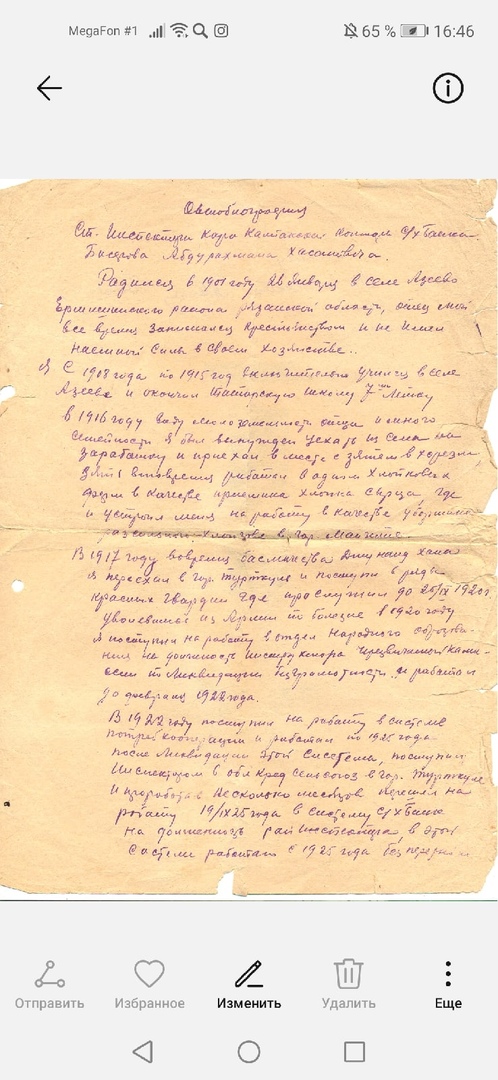 MegaFon #1 65 % 16:46
Автобиография
Ст. Инспектора Кара Калпакской Конторы С/х Банка
Абдурахмана Хасановича.
Родился в 1901 году 28 января в селе Азеево
Ермишинского района Рязанской область, отец мой
все время занимался крестьянством и не имел
наемной силы в своем хозяйстве..
Я С 1908 года по 1915 год включительно учился в селе
Азееве и окончил Татарскую школу 7ми летку
В 1916 году ввиду малоземельности отца и много
семейности я был вынужден уехать из села на
заработки и приехал вместе с зятем в Хорезм
Зять в то время работал в одном Хлопковом
в качестве приемщика хлопка сырца, где
и устроил меня на работу в качестве
в гор.
В 1917 году во время басмачества Джунаид хана
я переехал в гор. Турткуль и поступил в ряды
Красных Гвардии где прослужил до 20/IX 1920г.
уволившись из Армии по болезне в 1920 году
я поступил на работу в отдел Народного образова-
ния на должность инструктора Чрезвычайной Коми-
ссии по Ликвидации безграмотности и работал
до февраля 1922 года.
В 1922 году поступил на работу в систему
потребкооперации и работал по 1925 года
после Ликвидации этой системы, поступил
Инспектором в облКредсельсоюз в гор. Турткуле
и проработав несколько месяцев перешел на
работу 19/IX 25 года в систему С/х Банка
на должность, в этой
системе работаю с 1925 года
Отправить Избранное Изменить Удалить Еще